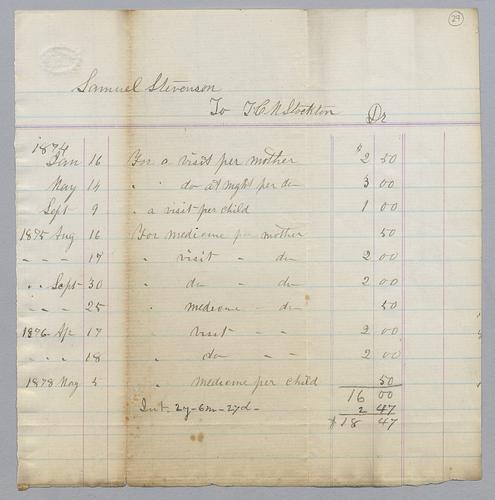 29
Samuel Stevenson
To T C M Stockton Dr
1874
Jan 16 For a visit per mother $2 50
May 14 " do at night per do 3 00
Sept 9 " a visit per child 1 00
1875 Aug 16 For medicine per mother 50
" " " 17 " visit " do 2 00
" " Sept 30 " do " do 2 00
" " " 25 " medicine " do 50
1876 Ap 17 " visit " " 2 00
" " " 18 " do " " 2 00
1878 Nov 5 " medicine per child 50
16 00
Int 2y-6m-27d- 2 47
$18 47